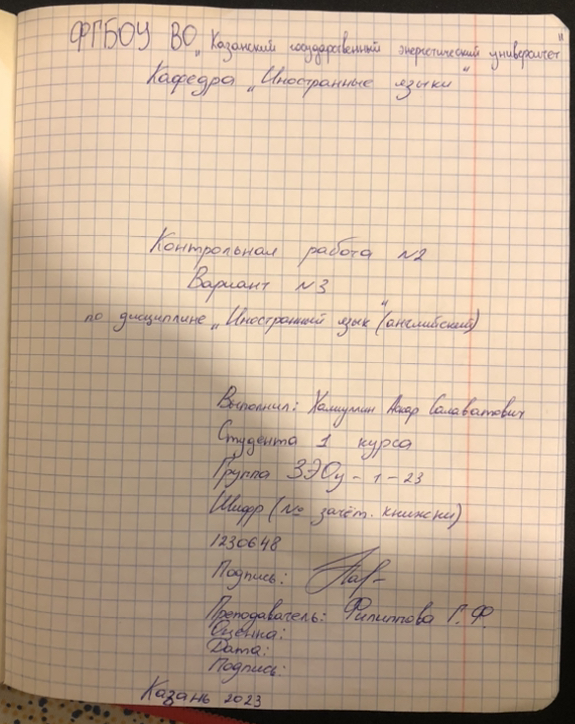 ФГБОУ ВО „Казанский государственный энергетический университет"
Кафедра „Иностранные языки"
Контрольная работа N2
Вариант N3
по дисциплине „Иностранный язык" (английский)
Выполнил: Салаватович
Студента 1 курса
Группа ЗЭОу-1-23
Шифр (№ зачёт. книжки)
1230648
Подпись:
Преподаватель: Филиппова Г.Ф.
Оценка:
Дата:
Подпись:
Казань 2023